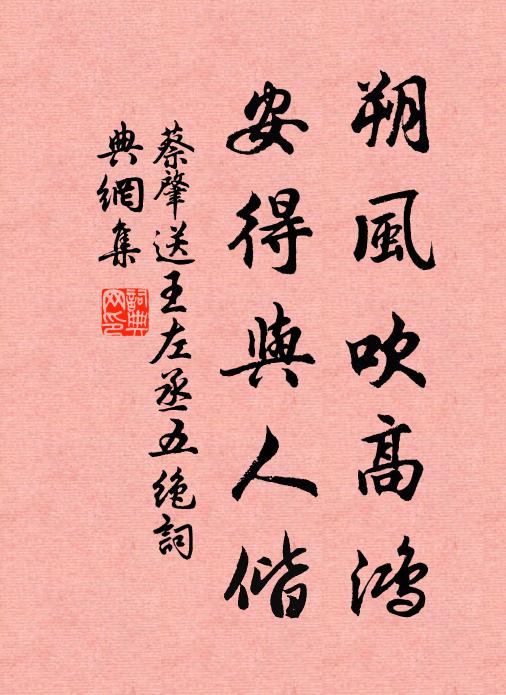 朔風吹高鴻
安得與人偕
蔡肇送王左丞五絶詞
典網集
詞典网印